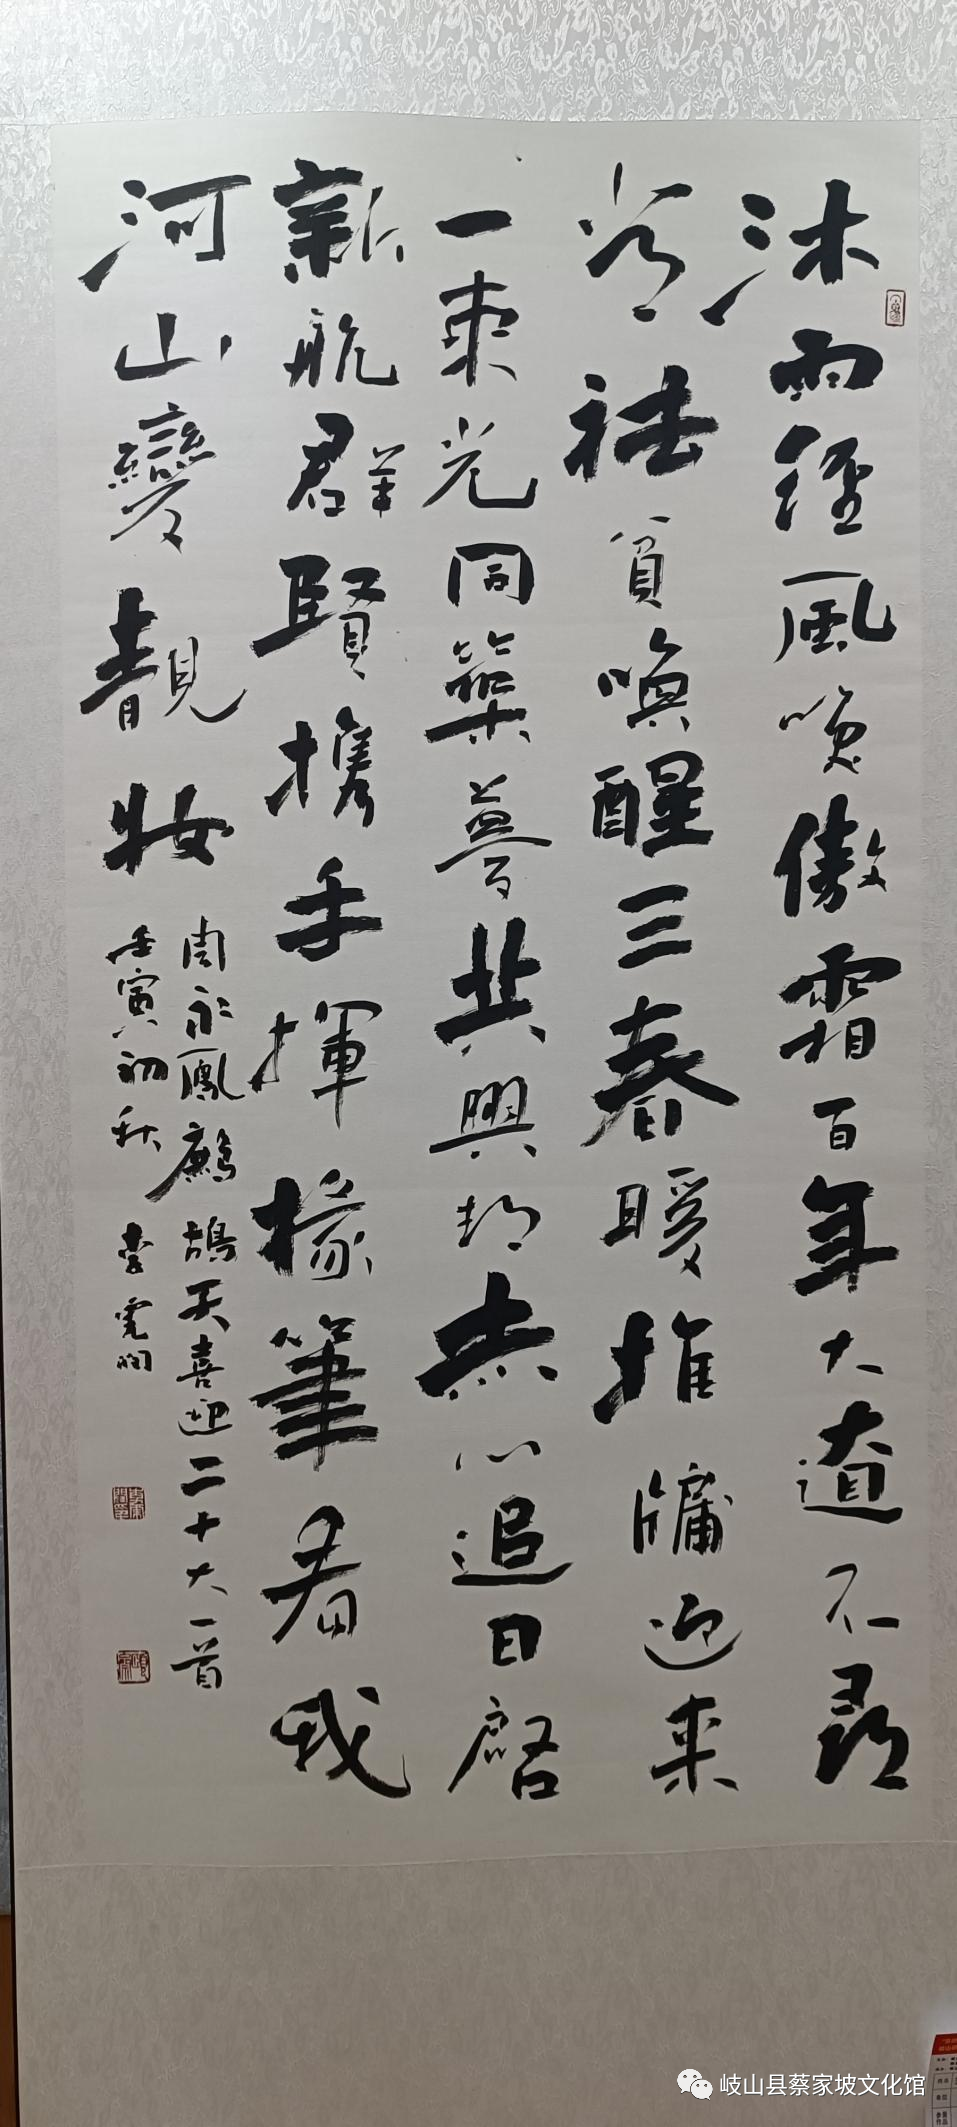 沐雨經風咲傲霜百年大道不尋
常祛貧喚醒三春暖推牖迎來
一束光同築夢共興邦赤心追日啓
新航群賢攜手揮椽筆看我
河山變靚妝
周永鳳鷓鴣天喜迎二十大一首
壬寅初秋 李
岐山县蔡家坡文化馆